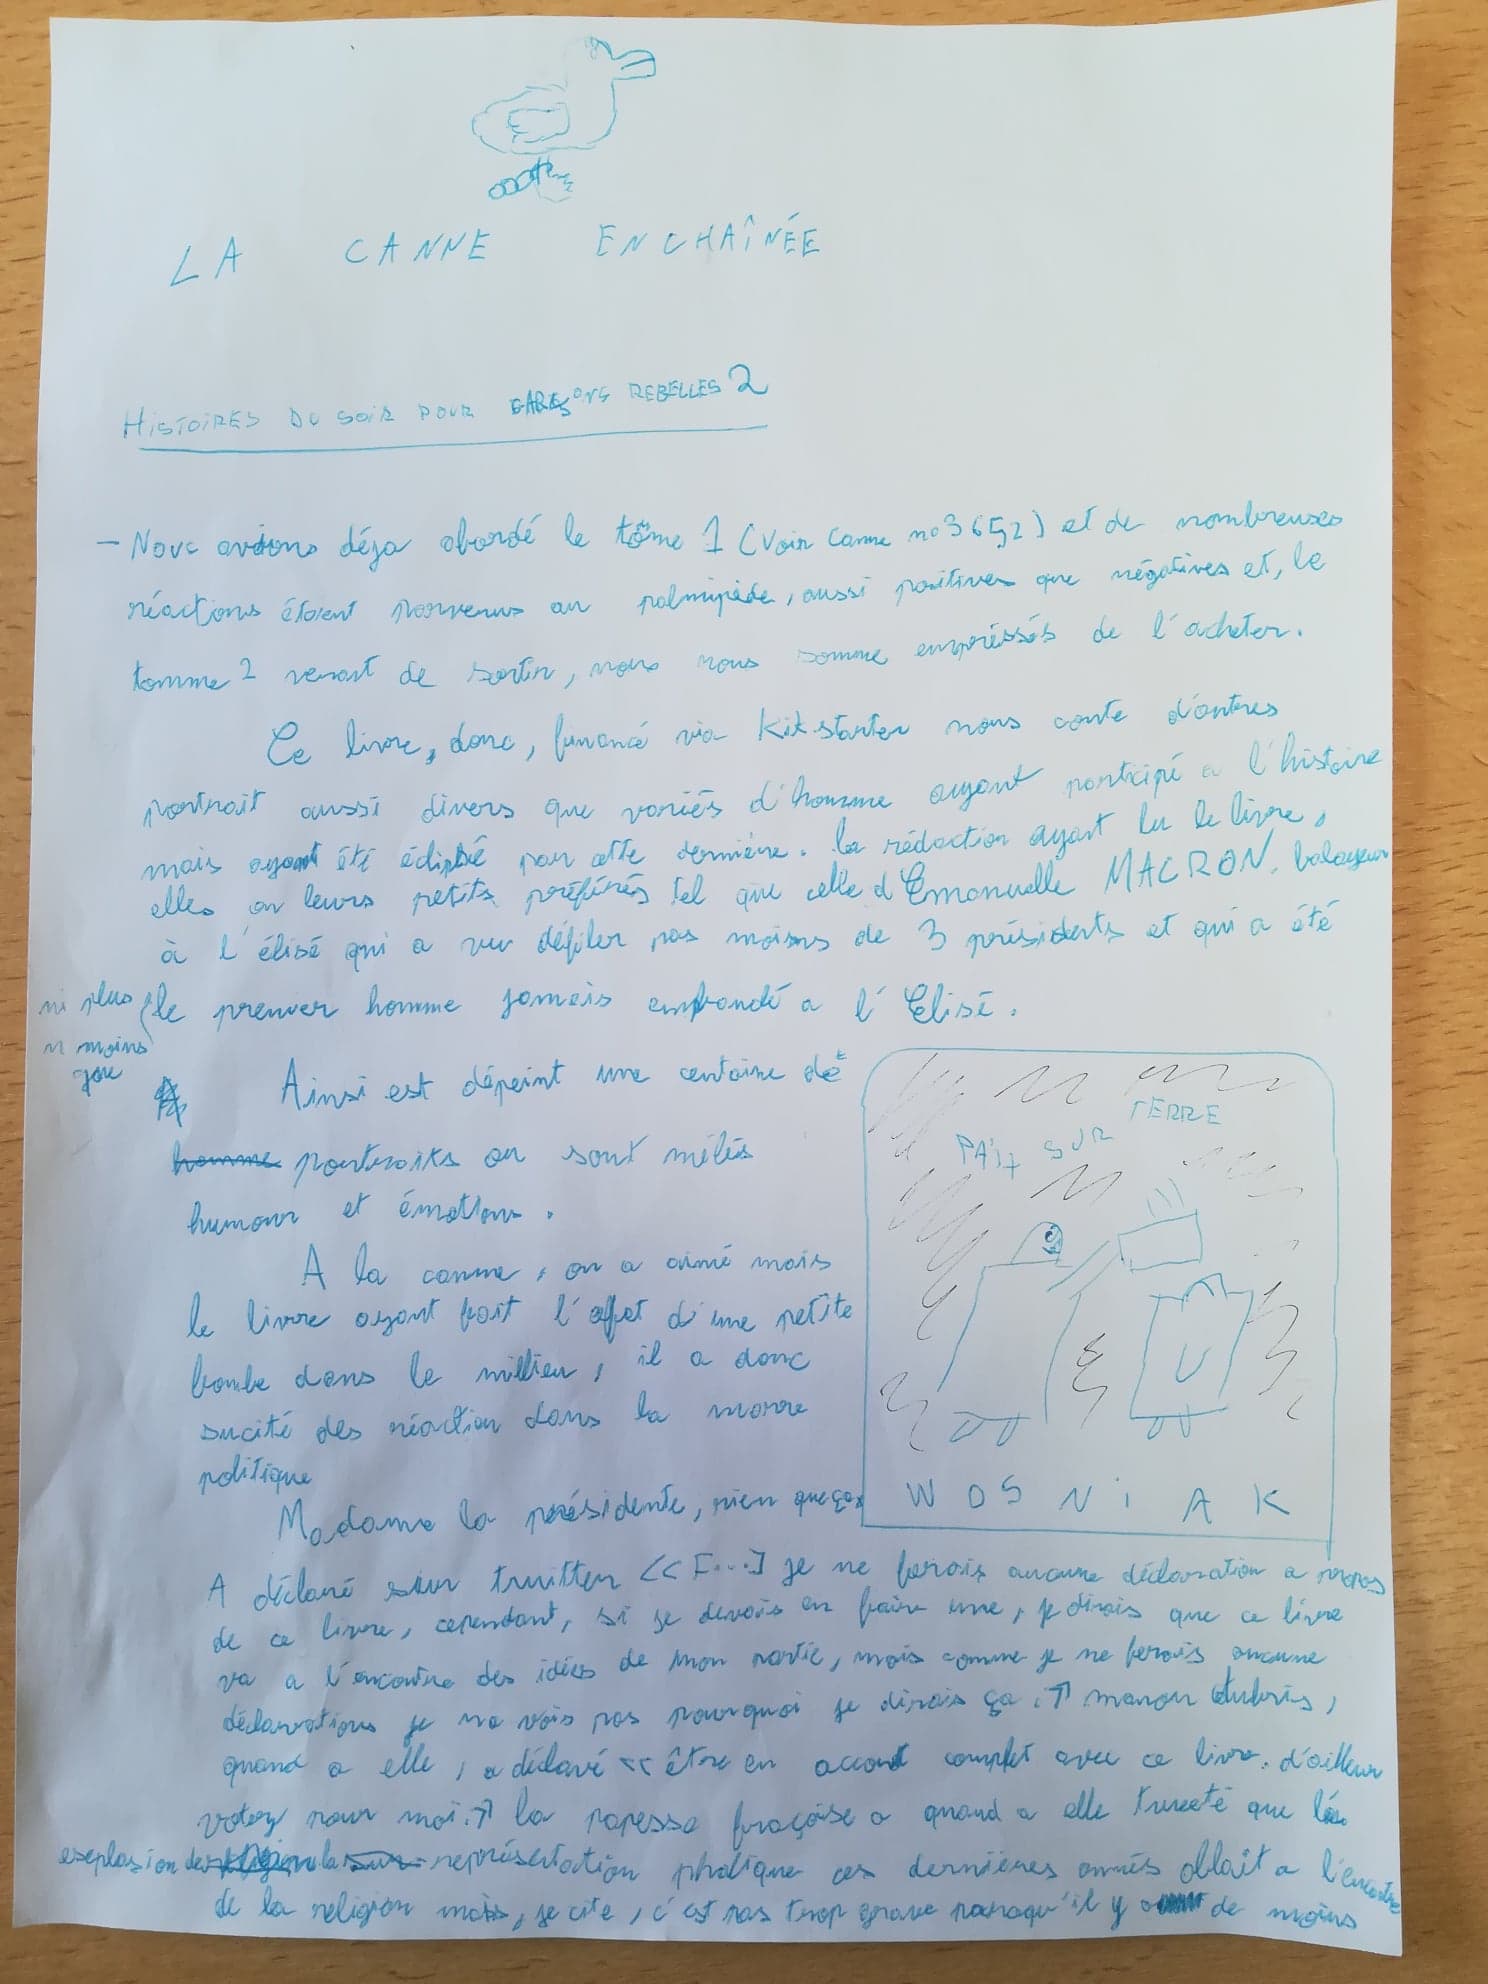 LA CANNE ENCHAÎNÉE
HISTOIRES DU SOIR POUR GARSONS REBELLES 2
- Nous avions déja abordé le tôme 1 (Voir Canne no 3652) et de nombreuses
réactions étaient parvenus au palmipède, aussi positives que négatives et, le
tomme 2 venant de sortir, nous nous somme empréssés de l'acheter.
Ce livre, donc, funancé via Kikstarter nous conte d'autres
portrait aussi divers que variés d'homme ayant participé a l'histoire
mais ayant été par cette dernière. la rédaction ayant lu le livre,
elles on leurs petits préférés tel que celle d'Emanuelle MACRON, balayeur
à l'élisé qui a vu défiler pas moins de 3 présidents et qui a été
ni plus ni moins que le premier homme jamais a l'Elisé.
Ainsi est dépeint une centaine de
homme portraits ou sont mélés
humour et émotions.
A la canne, on a aimé mais
le livre ayant fait l'effet d'une petite
bombe dans le millieu, il a donc
sucité des réaction dans la marre
politique
Madame la présidente, rien que ça,
A déclaré sur truitter <<[...] je ne ferais aucune déclaration a propos
de ce livre, cependant, si je devais en faire une, je dirais que ce livre
va a l'encontre des idées de mon partie, mais comme je ne ferais aucune
déclarations je ne vois pas pourquoi je dirais ça.>> manon
quand a elle, a déclavé << être en accord complet avec ce livre. d'ailleur
votez pour moi.>> la papesse fraçoise a quand a elle tweeté que
représentation phalique ces dernières annés allait a l'encontre
de la religion mais, je cite, c'est pas trop grave parsqu'il y a de moins
PAIX SUR TERRE
U
WOSNIAK